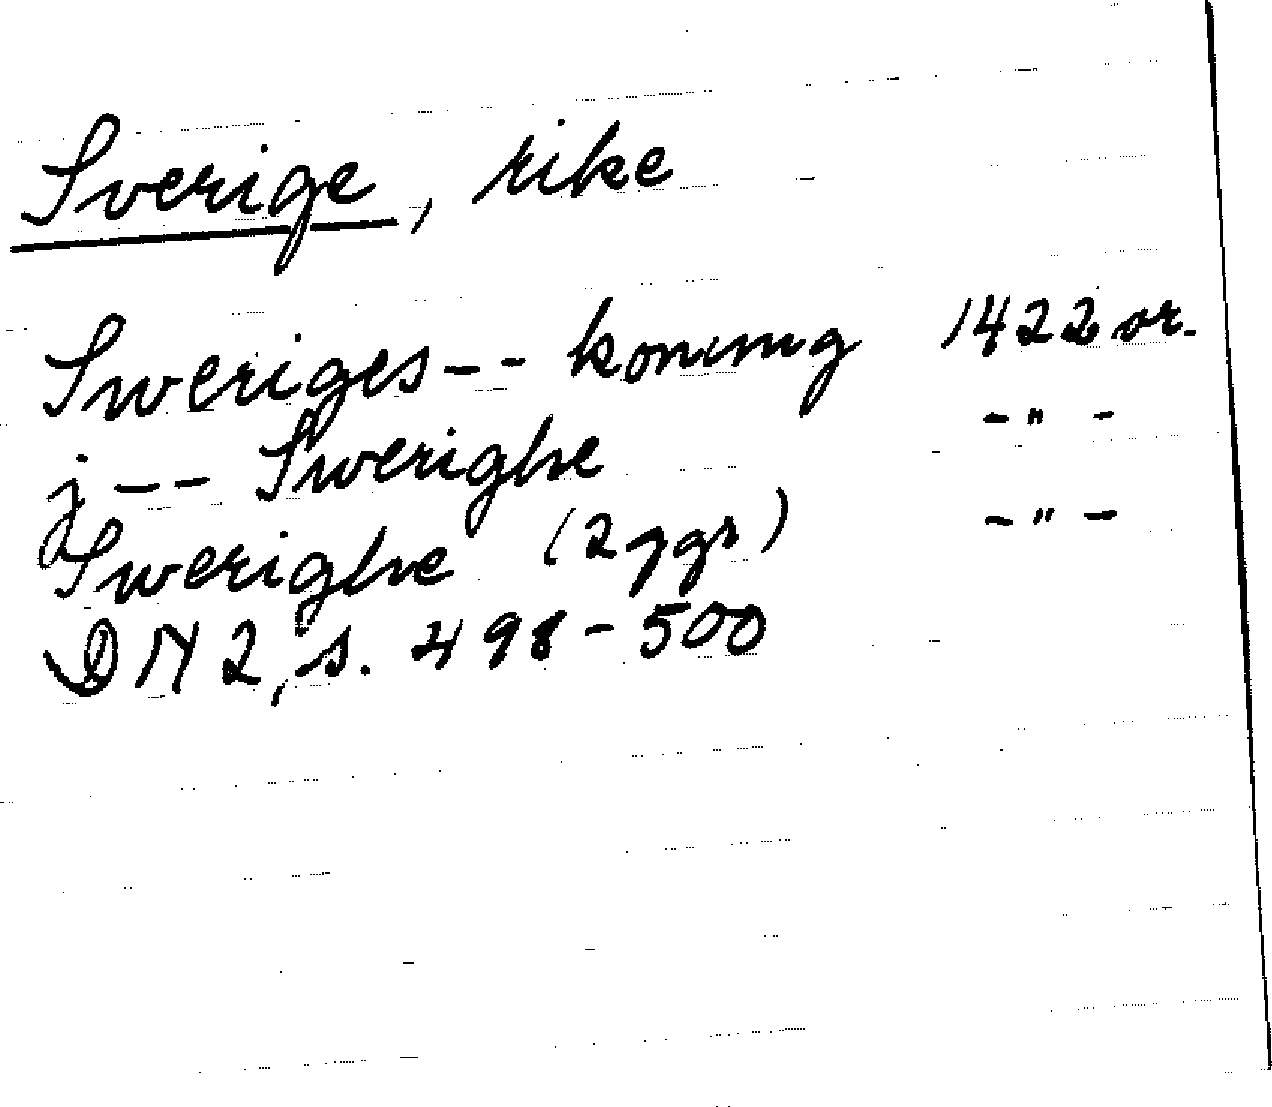 Sverige, rike
Sweriges -- konung 1422 or.
j -- Swerighe -"-
Swerighe (2 ggr) -"-
DN 2, s. 498-500